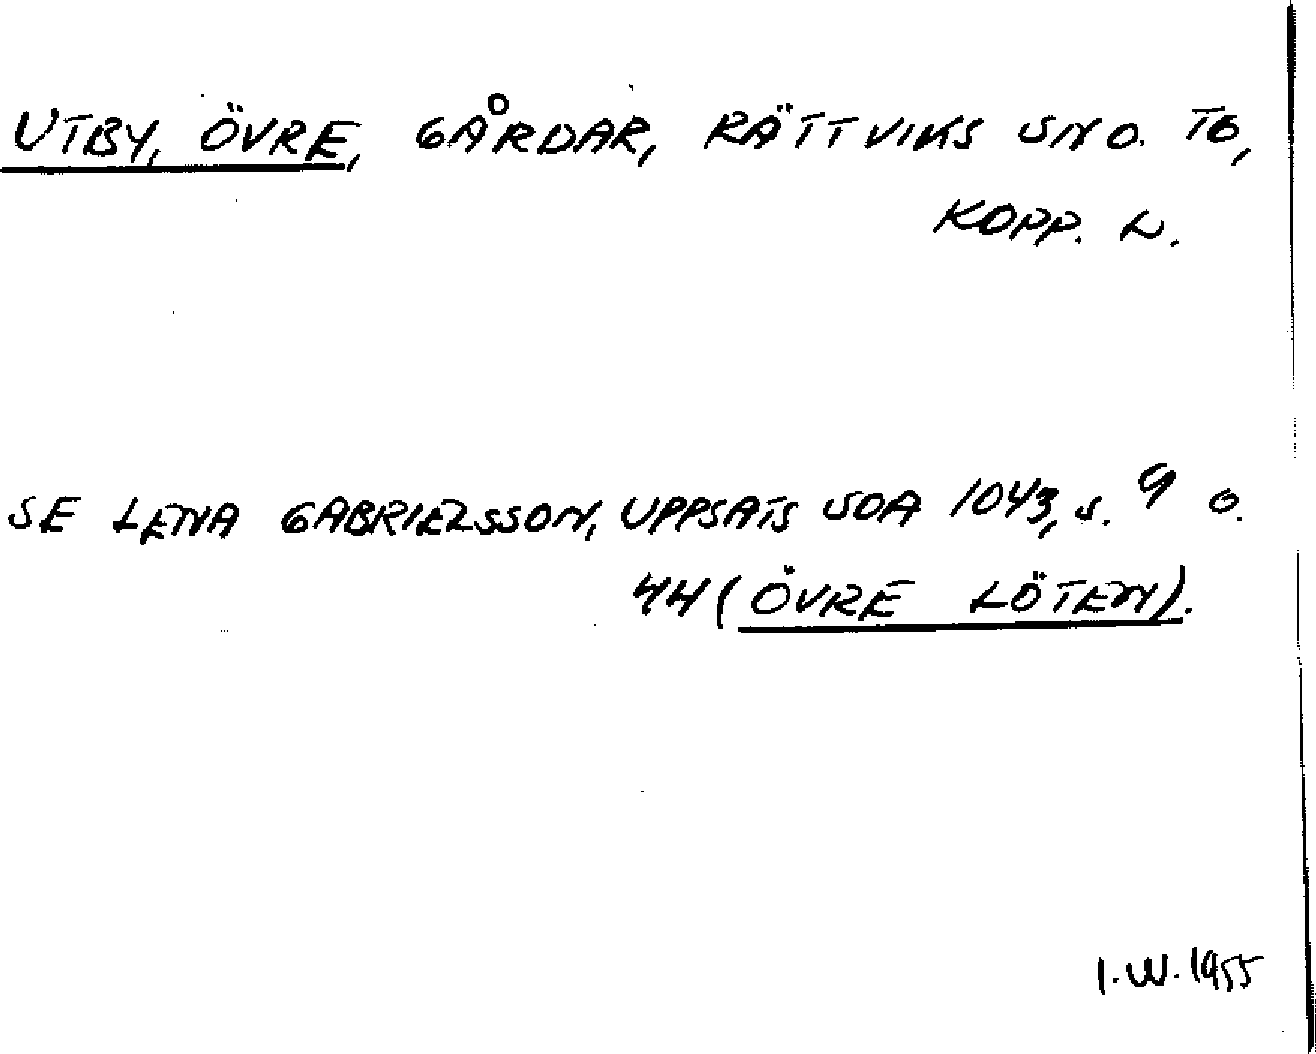 UTBY, ÖVRE, GÅRDAR, RÄTTVIKS SN O. TG,
KOPP. L.
SE LENA GABRIELSSON, UPPSATS SOA 1043, s. 9 o.
44 (ÖVRE LÖTEN).
I.W. 1955